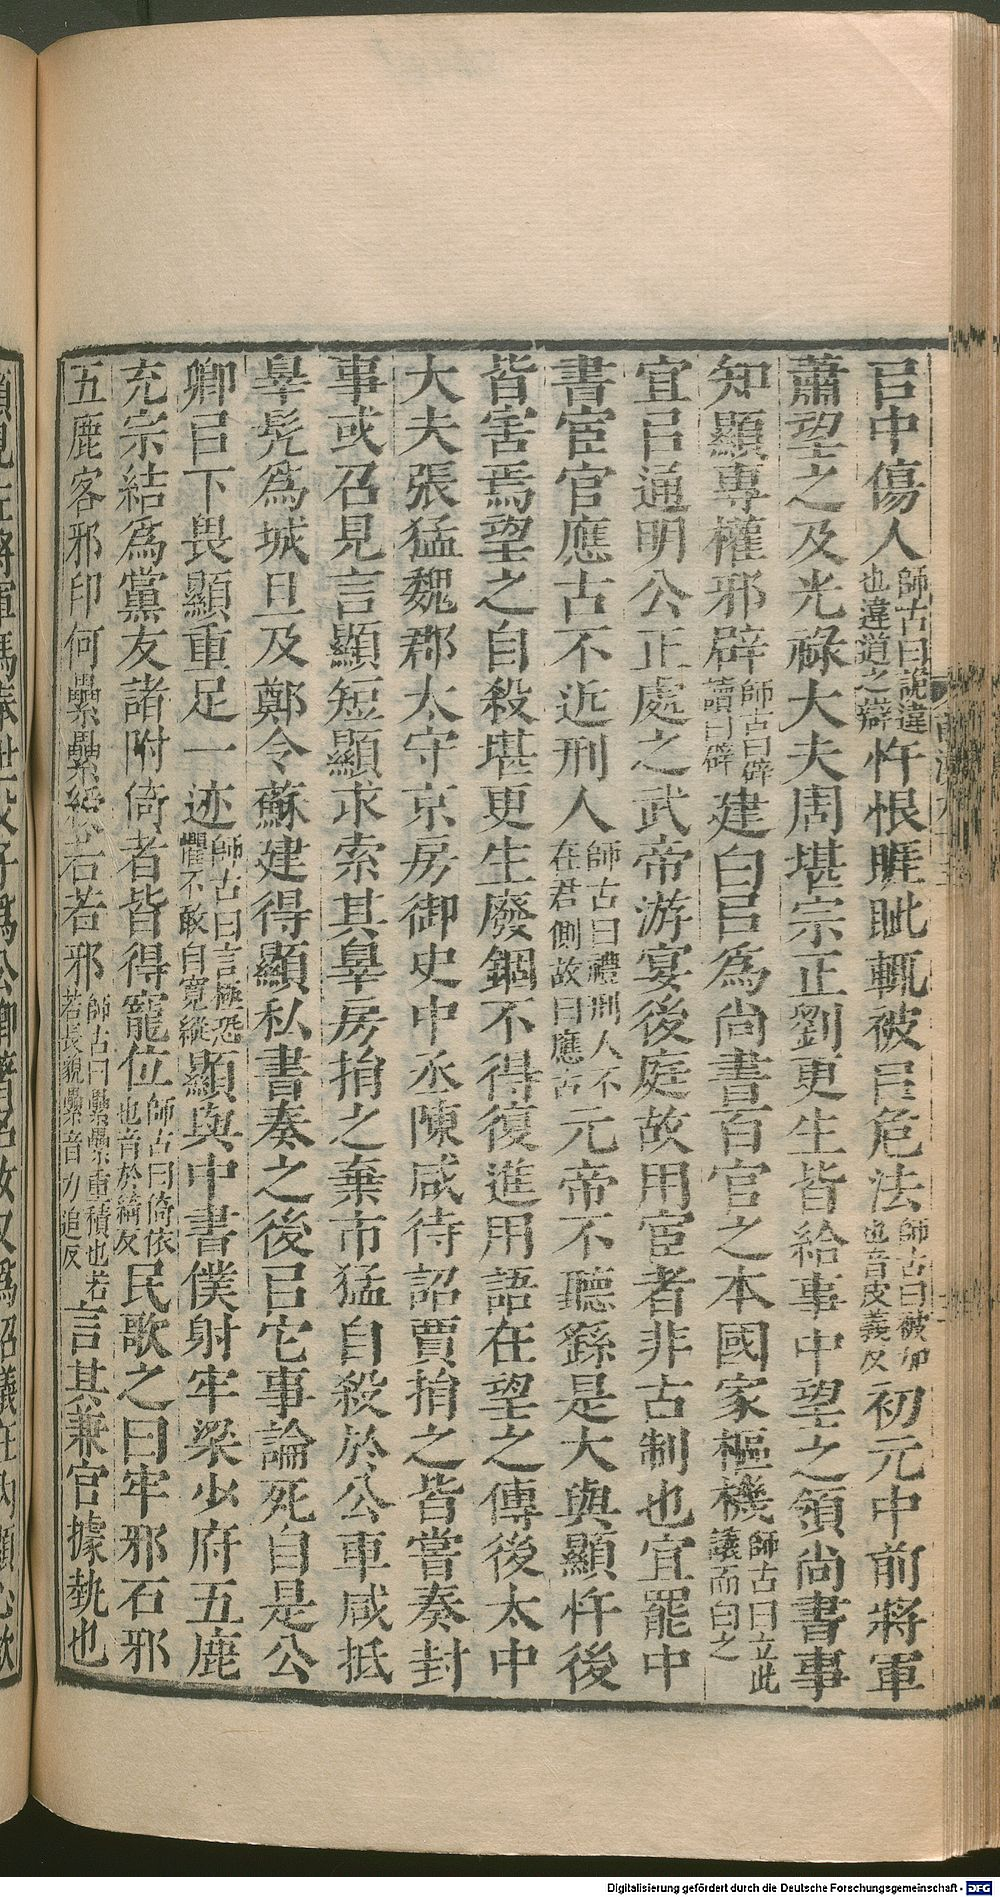 㠯中傷人師古曰詭違也違道之辯忤恨睚眦輒被㠯危法師古曰被加也音皮義反初元中前將軍
蕭望之及光祿大夫周堪宗正劉更生皆給事中望之領尚書事
知顯專權邪辟師古曰辟讀曰辟建白㠯爲尚書百官之本國家樞機師古曰立此議而白之
宜㠯通明公正處之武帝游宴後庭故用宦者非古制也宜罷中
書宦官應古不近刑人師古曰禮刑人不在君側故曰應古元帝不聽繇是大與顯忤後
皆害焉望之自殺堪更生廢錮不得復進用語在望之傳後太中
大夫張猛魏郡太守京房御史中丞陳咸待詔賈捐之皆嘗奏封
事或召見言顯短顯求索其辠房捐之棄市猛自殺於公車咸抵
辠髡爲城旦及鄭令蘇建得顯私書奏之後㠯它事論死自是公
卿㠯下畏顯重足一迹師古曰言極恐懼不敢自寬縱顯與中書僕射牢梁少府五鹿
充宗結爲黨友諸附倚者皆得寵位師古曰倚依也音於綺反民歌之曰牢邪石邪
五鹿客邪印何纍纍綬若若邪師古曰纍纍重積也若若長貌纍音力追反言其兼官據埶也
Digitalisierung gefördert durch die Deutsche Forschungsgemeinschaft - DFG